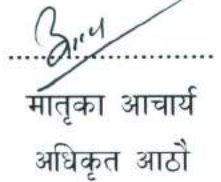 मातृका आचार्य
अधिकृत आठौ